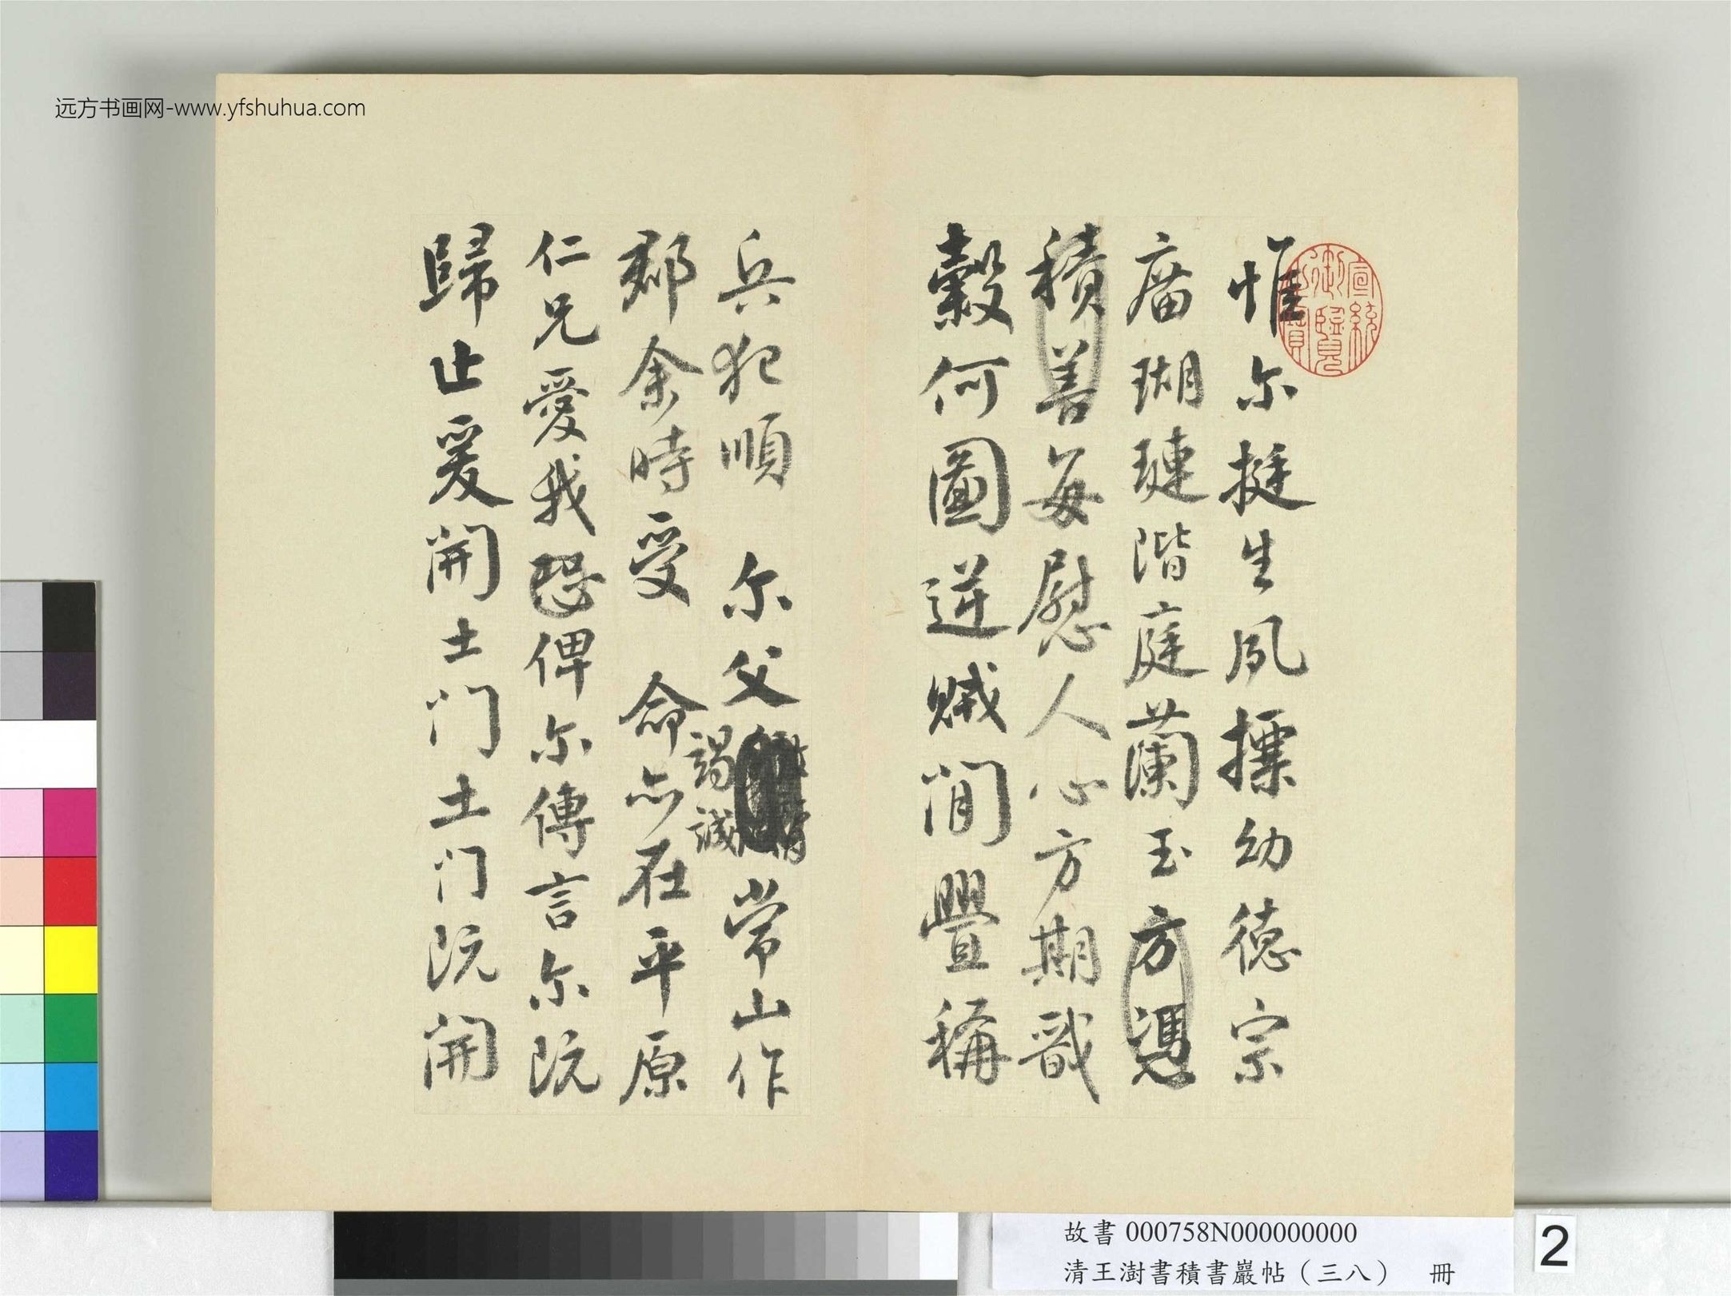 远方书画网-www.yfshuhua.com
惟尔挺生夙摽幼德宗
庿瑚璉階庭蘭玉方憑
積善每慰人心方期戩
穀何圖逆賊閒舋稱
兵犯順 尔父 常山作
竭誠
郡余時受 命亦在平原
仁兄愛我恐俾尔傳言尔既
歸止爰開土门土门既開
宣統御覽之寶
故書 000758N000000000
清王澍書積書巖帖（三八） 冊
2